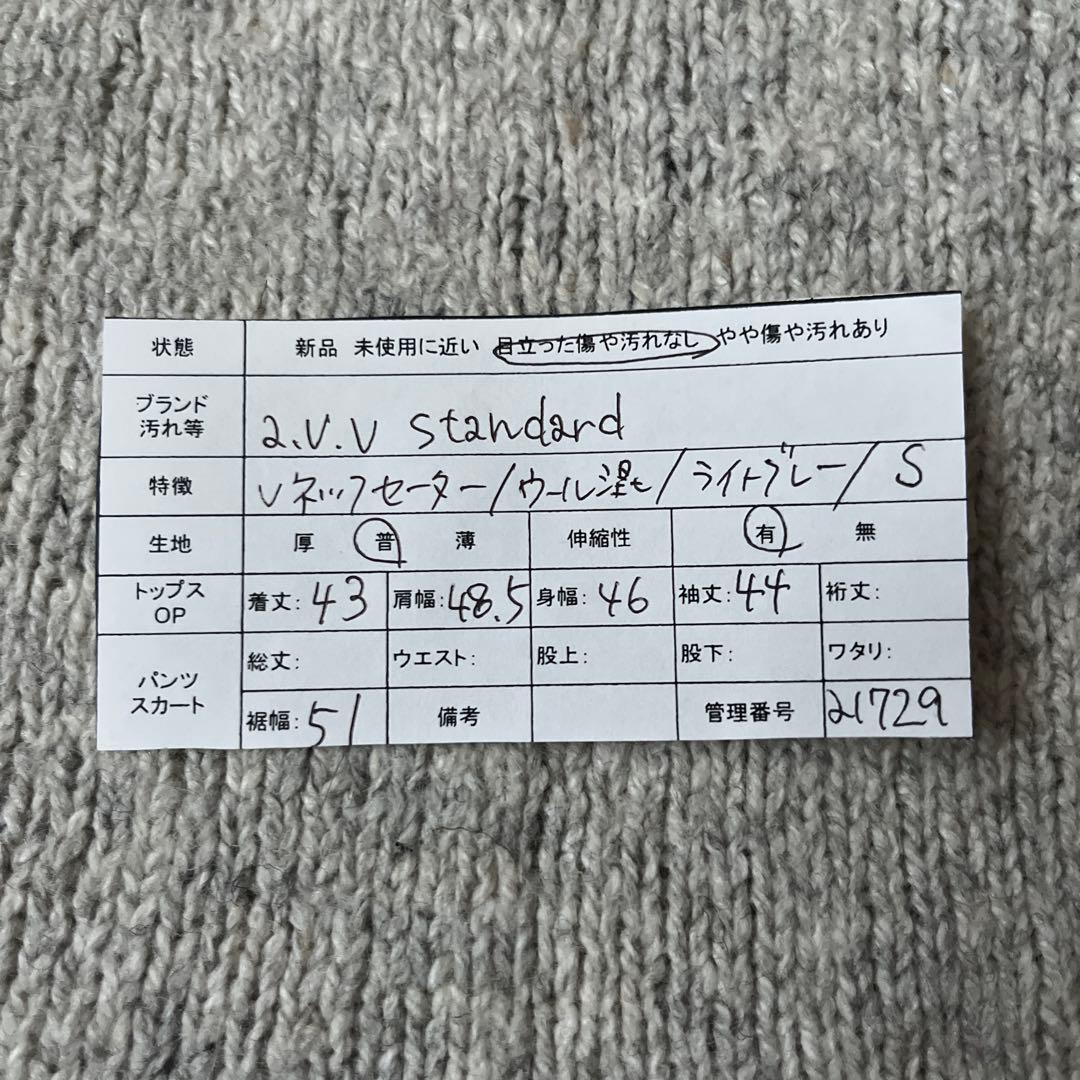 状態 新品 未使用に近い 目立った傷や汚れなし やや傷や汚れあり
ブランド
汚れ等 a.v.v standard
特徴 Vネックセーター/ウール混/ライトグレー/S
生地 厚 普 薄 伸縮性 有 無
トップス
OP 着丈:43 肩幅:48.5 身幅:46 袖丈:44 裄丈:
パンツ
スカート 総丈: ウエスト: 股上: 股下: ワタリ:
裾幅:51 備考 管理番号 21729